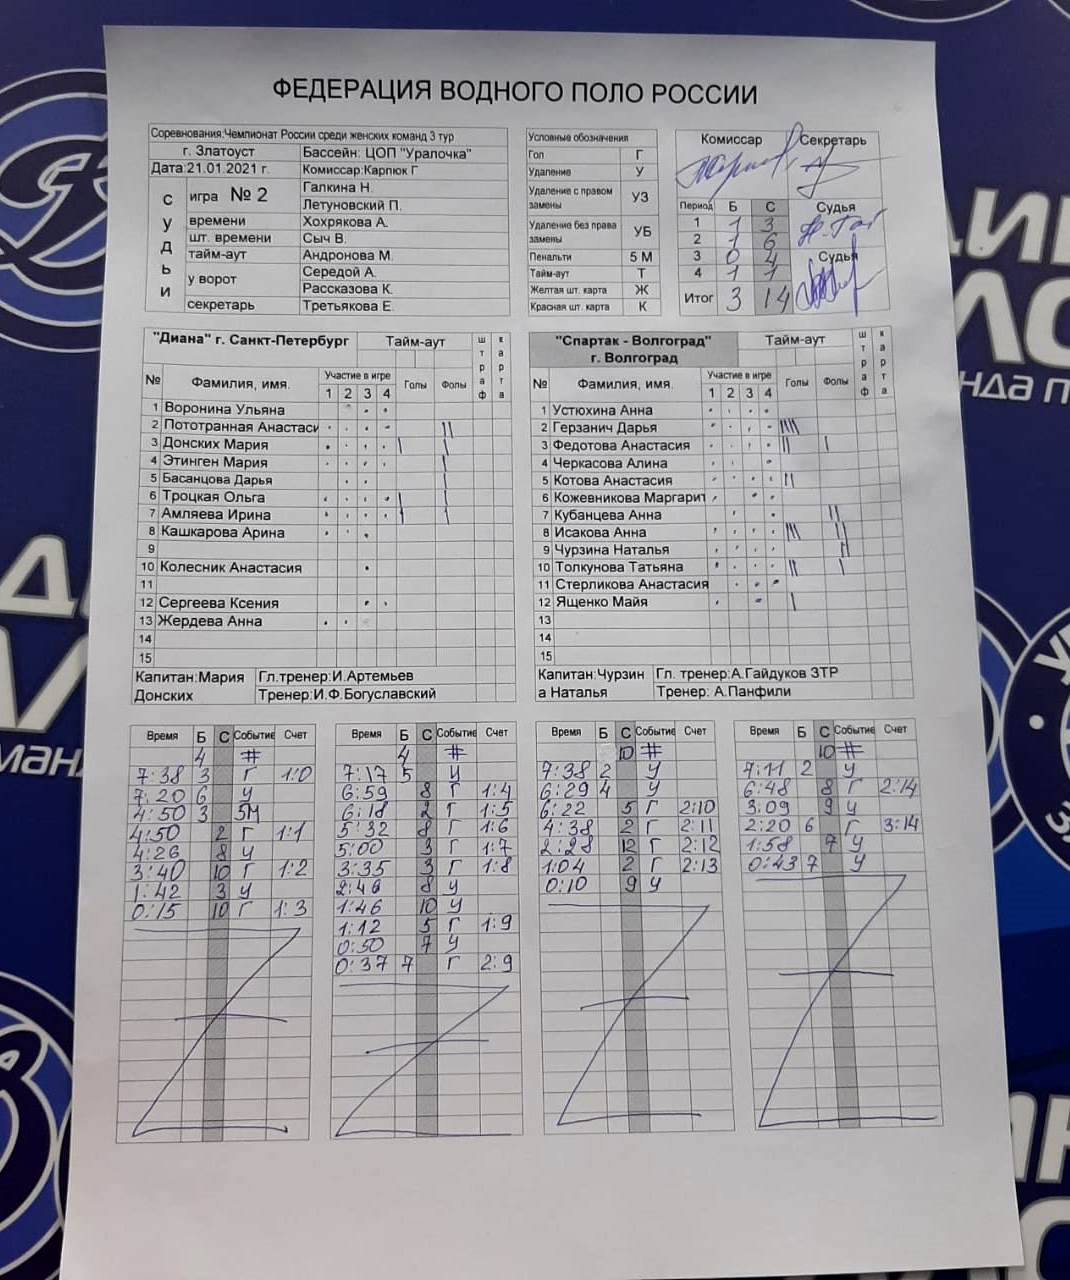 ФЕДЕРАЦИЯ ВОДНОГО ПОЛО РОССИИ
Соревнования:Чемпионат России среди женских команд 3 тур
г. Златоуст Бассейн: ЦОП "Уралочка"
Дата:21.01.2021 г. Комиссар:Карпюк Г
СУДЬИ
игра № 2 Галкина Н.
Летуновский П.
времени Хохрякова А.
шт. времени Сыч В.
тайм-аут Андронова М.
у ворот Середой А.
Рассказова К.
секретарь Третьякова Е.
Условные обозначения
Гол Г
Удаление У
Удаление с правом замены УЗ
Удаление без права замены УБ
Пенальти 5 М
Тайм-аут Т
Желтая шт. карта Ж
Красная шт. карта К
Комиссар Секретарь
Период Б С Судья
1 1 3
2 1 6
3 0 4 Судья
4 1 1
Итог 3 14
"Диана" г. Санкт-Петербург Тайм-аут штраф карта
№ Фамилия, имя. Участие в игре Голы Фолы
1 2 3 4
1 Воронина Ульяна
2 Пототранная Анастаси
3 Донских Мария
4 Этинген Мария
5 Басанцова Дарья
6 Троцкая Ольга
7 Амляева Ирина
8 Кашкарова Арина
9
10 Колесник Анастасия
11
12 Сергеева Ксения
13 Жердева Анна
14
15
Капитан:Мария Донских
Гл.тренер:И.Артемьев
Тренер:И.Ф.Богуславский
"Спартак - Волгоград" г. Волгоград Тайм-аут штраф карта
№ Фамилия, имя. Участие в игре Голы Фолы
1 2 3 4
1 Устюхина Анна
2 Герзанич Дарья
3 Федотова Анастасия
4 Черкасова Алина
5 Котова Анастасия
6 Кожевникова Маргарит
7 Кубанцева Анна
8 Исакова Анна
9 Чурзина Наталья
10 Толкунова Татьяна
11 Стерликова Анастасия
12 Ященко Майя
13
14
15
Капитан:Чурзин
а Наталья
Гл. тренер:А.Гайдуков ЗТР
Тренер: А.Панфили
Время Б С Событие Счет
4 #
7:38 3 Г 1:0
7:20 6 У
4:50 3 5М
4:50 2 Г 1:1
4:26 8 У
3:40 10 Г 1:2
1:42 3 У
0:15 10 Г 1:3
Время Б С Событие Счет
4 #
7:17 5 У
6:59 8 Г 1:4
6:18 2 Г 1:5
5:32 8 Г 1:6
5:00 3 Г 1:7
3:35 3 Г 1:8
2:46 8 У
1:46 10 У
1:12 5 Г 1:9
0:50 7 У
0:37 7 Г 2:9
Время Б С Событие Счет
10 #
7:38 2 У
6:29 4 У
6:22 5 Г 2:10
4:38 2 Г 2:11
2:28 12 Г 2:12
1:04 2 Г 2:13
0:10 9 У
Время Б С Событие Счет
10 #
7:11 2 У
6:48 8 Г 2:14
3:09 9 У
2:20 6 Г 3:14
1:58 7 У
0:43 7 У